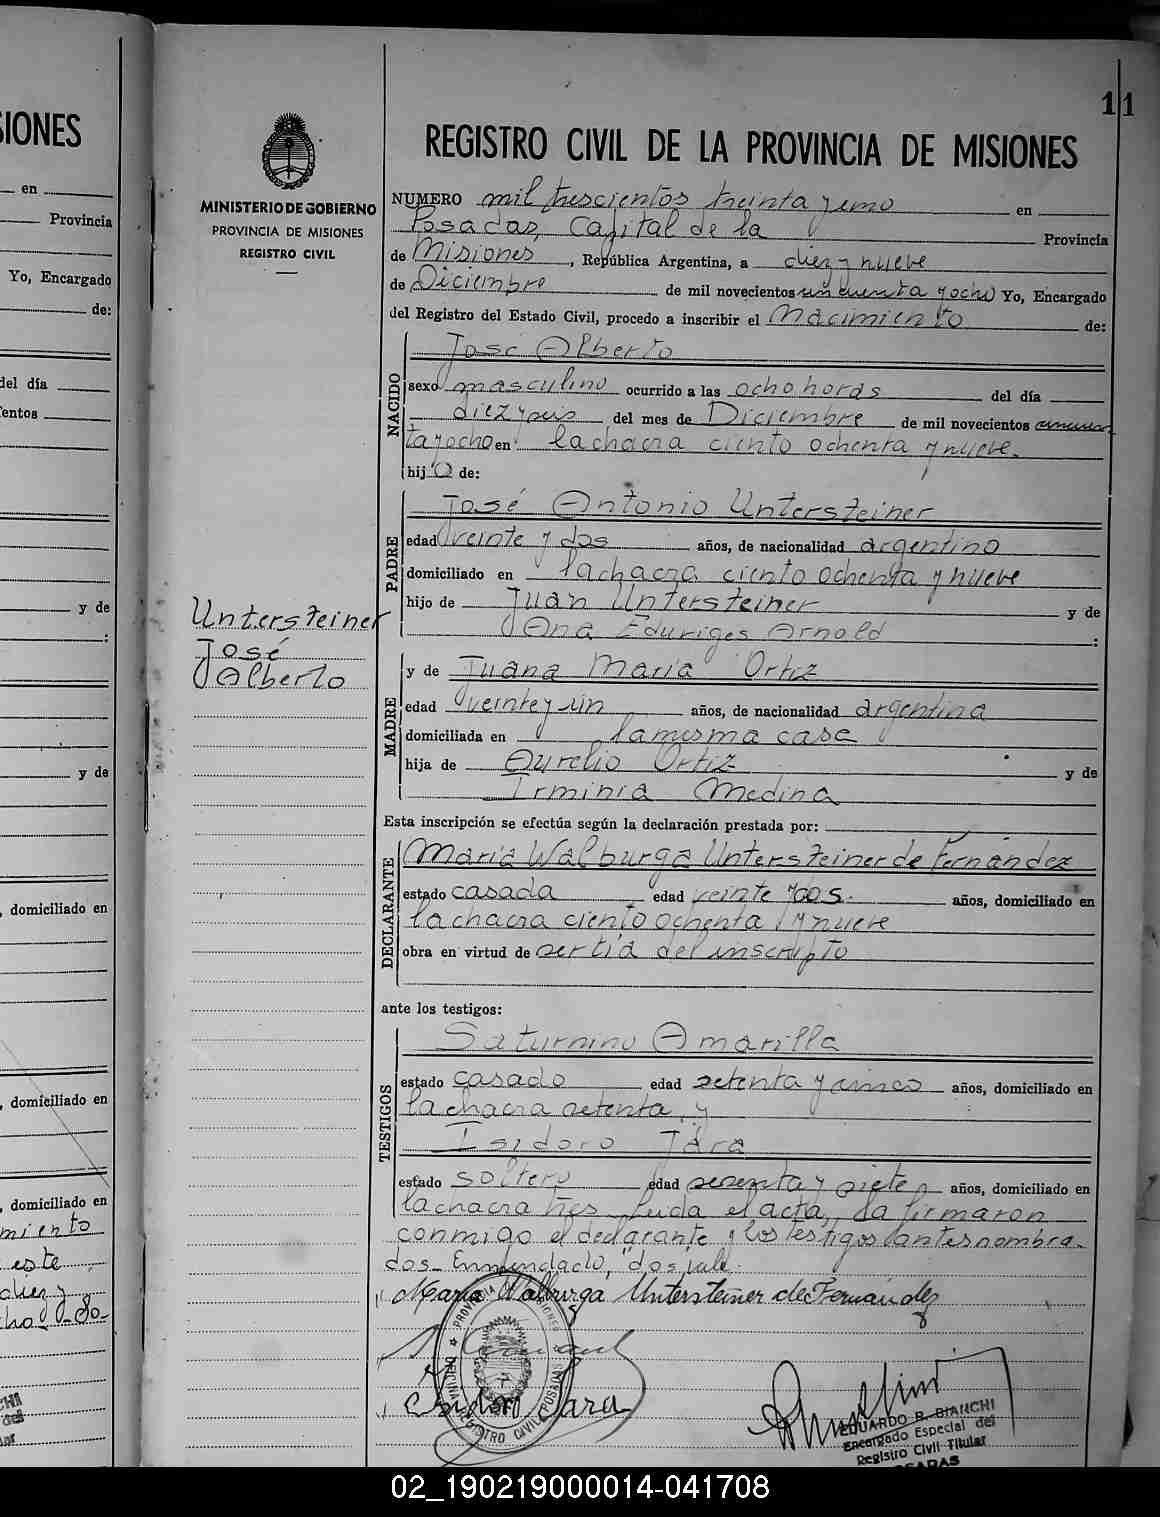 SIONES
en
Provincia
Yo, Encargado
de:
del día
entos
y de
:
y de
, domiciliado en
, domiciliado en
, domiciliado en
miento
este
diez y
cho
11
MINISTERIO DE GOBIERNO
PROVINCIA DE MISIONES
REGISTRO CIVIL
Untersteiner
José
Alberto
REGISTRO CIVIL DE LA PROVINCIA DE MISIONES
NUMERO mil trescientos treinta y uno en
Posadas, Capital de la Provincia
de Misiones, República Argentina, a diez y nueve
de Diciembre de mil novecientos cincuenta y ocho Yo, Encargado
del Registro del Estado Civil, procedo a inscribir el Nacimiento de:
NACIDO
José Alberto
sexo masculino ocurrido a las ocho horas del día
diez y seis del mes de Diciembre de mil novecientos cincuen
ta y ocho en la chacra ciento ochenta y nueve.
hijo de:
PADRE
José Antonio Untersteiner
edad veinte y dos años, de nacionalidad argentino
domiciliado en la chacra ciento ochenta y nueve
hijo de Juan Untersteiner y de
Ana Eduriges Arnold :
MADRE
y de Juana María Ortiz
edad veinte y un años, de nacionalidad argentina
domiciliada en la misma casa
hija de Aurelio Ortiz y de
Irminia Medina
Esta inscripción se efectúa según la declaración prestada por:
DECLARANTE
María Walburga Untersteiner de Fernández
estado casada edad veinte y dos. años, domiciliado en
la chacra ciento ochenta y nueve
obra en virtud de ser tía del inscripto
ante los testigos:
TESTIGOS
Saturnino Amarilla
estado casado edad setenta y cinco años, domiciliado en
la chacra setenta, y
Isidoro Jara
estado soltero edad sesenta y siete años, domiciliado en
la chacra tres. Leida el acta, la firmaron
conmigo el declarante y los testigos antes nombra-
dos_ Enmendado, "dos, vale.
María Walburga Untersteiner de Fernández
Isidoro Jara
PROVINCIA MISIONES
OFICINA REGISTRO CIVIL POSADAS
EDUARDO R. BIANCHI
Encargado Especial del
Registro Civil Titular
POSADAS
02_190219000014-041708